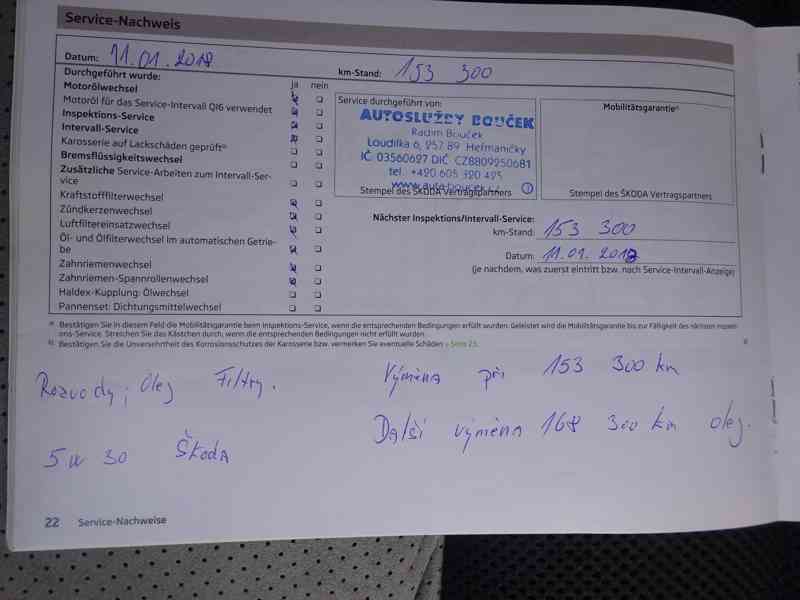 Service-Nachweis
Datum: 11.01.2018
km-Stand: 153 300
Durchgeführt wurde:
ja nein
Motorölwechsel
Motoröl für das Service-Intervall QI6 verwendet
Inspektions-Service
Intervall-Service
Karosserie auf Lackschäden geprüft
Bremsflüssigkeitswechsel
Zusätzliche Service-Arbeiten zum Intervall-Ser-
vice
Kraftstofffilterwechsel
Zündkerzenwechsel
Luftfiltereinsatzwechsel
Öl- und Ölfilterwechsel im automatischen Getrie-
be
Zahnriemenwechsel
Zahnriemen-Spannrollenwechsel
Haldex-Kupplung: Ölwechsel
Pannenset: Dichtungsmittelwechsel
Service durchgeführt von:
AUTOSLUŽBY BOUČEK
Radim Bouček
Loudilka 6, 257 89 Heřmaničky
IČ 03560627 DIČ CZ8809250681
tel. +420 605 320 425
www.auto-boucek.cz
Stempel des ŠKODA Vertragspartners
Mobilitätsgarantie
Stempel des ŠKODA Vertragspartners
Nächster Inspektions/Intervall-Service:
km-Stand: 153 300
Datum: 11.01.2018
(je nachdem, was zuerst eintritt bzw. nach Service-Intervall-Anzeige)
a) Bestätigen Sie in diesem Feld die Mobilitätsgarantie beim Inspektions-Service, wenn die entsprechenden Bedingungen erfüllt wurden. Geleistet wird die Mobilitätsgarantie bis zur Fälligkeit des nächsten Inspekti-
ons-Service. Streichen Sie das Kästchen durch, wenn die entsprechenden Bedingungen nicht erfüllt wurden.
b) Bestätigen Sie die Unversehrtheit des Korrosionsschutzes der Karosserie bzw. vermerken Sie eventuelle Schäden » Seite 23.
Rozvody, Olej Filtry.
Výměna při 153 300 km
5w 30 Škoda
Další výměna 168 300 km olej.
22 Service-Nachweise